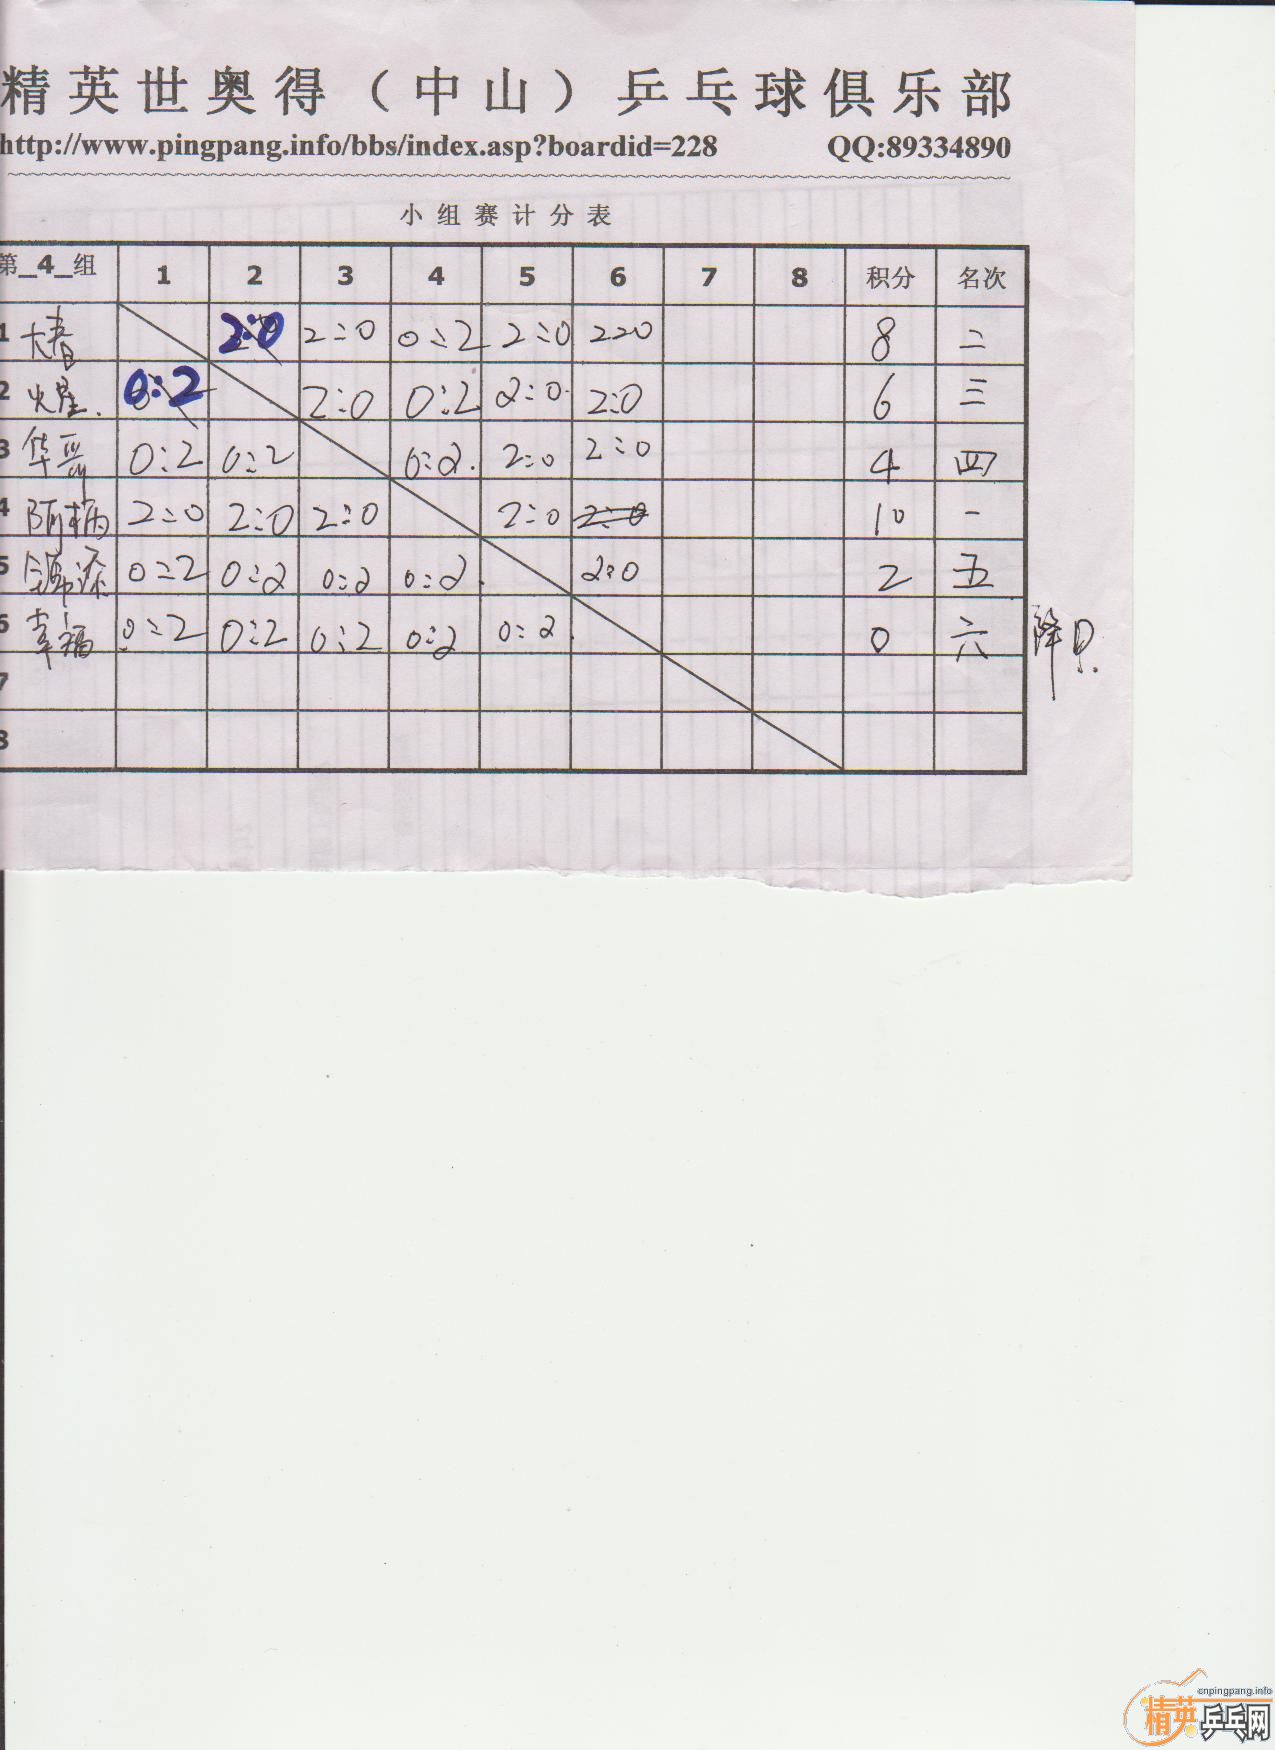 精英世奥得（中山）乒乓球俱乐部
http://www.pingpang.info/bbs/index.asp?boardid=228 QQ:89334890
小组赛计分表
第_4_组 1 2 3 4 5 6 7 8 积分 名次
1 大春 2:0 2:0 0:2 2:0 2:0 8 二
2 火星. 0:2 2:0 0:2 2:0 2:0 6 三
3 华 0:2 0:2 0:2 2:0 2:0 4 四
4 阿柄 2:0 2:0 2:0 2:0 2:0 10 一
5 0:2 0:2 0:2 0:2 2:0 2 五
6 幸福 0:2 0:2 0:2 0:2 0:2 0 六 降P.
7
8
cnpingpang.info
精英乒乓网